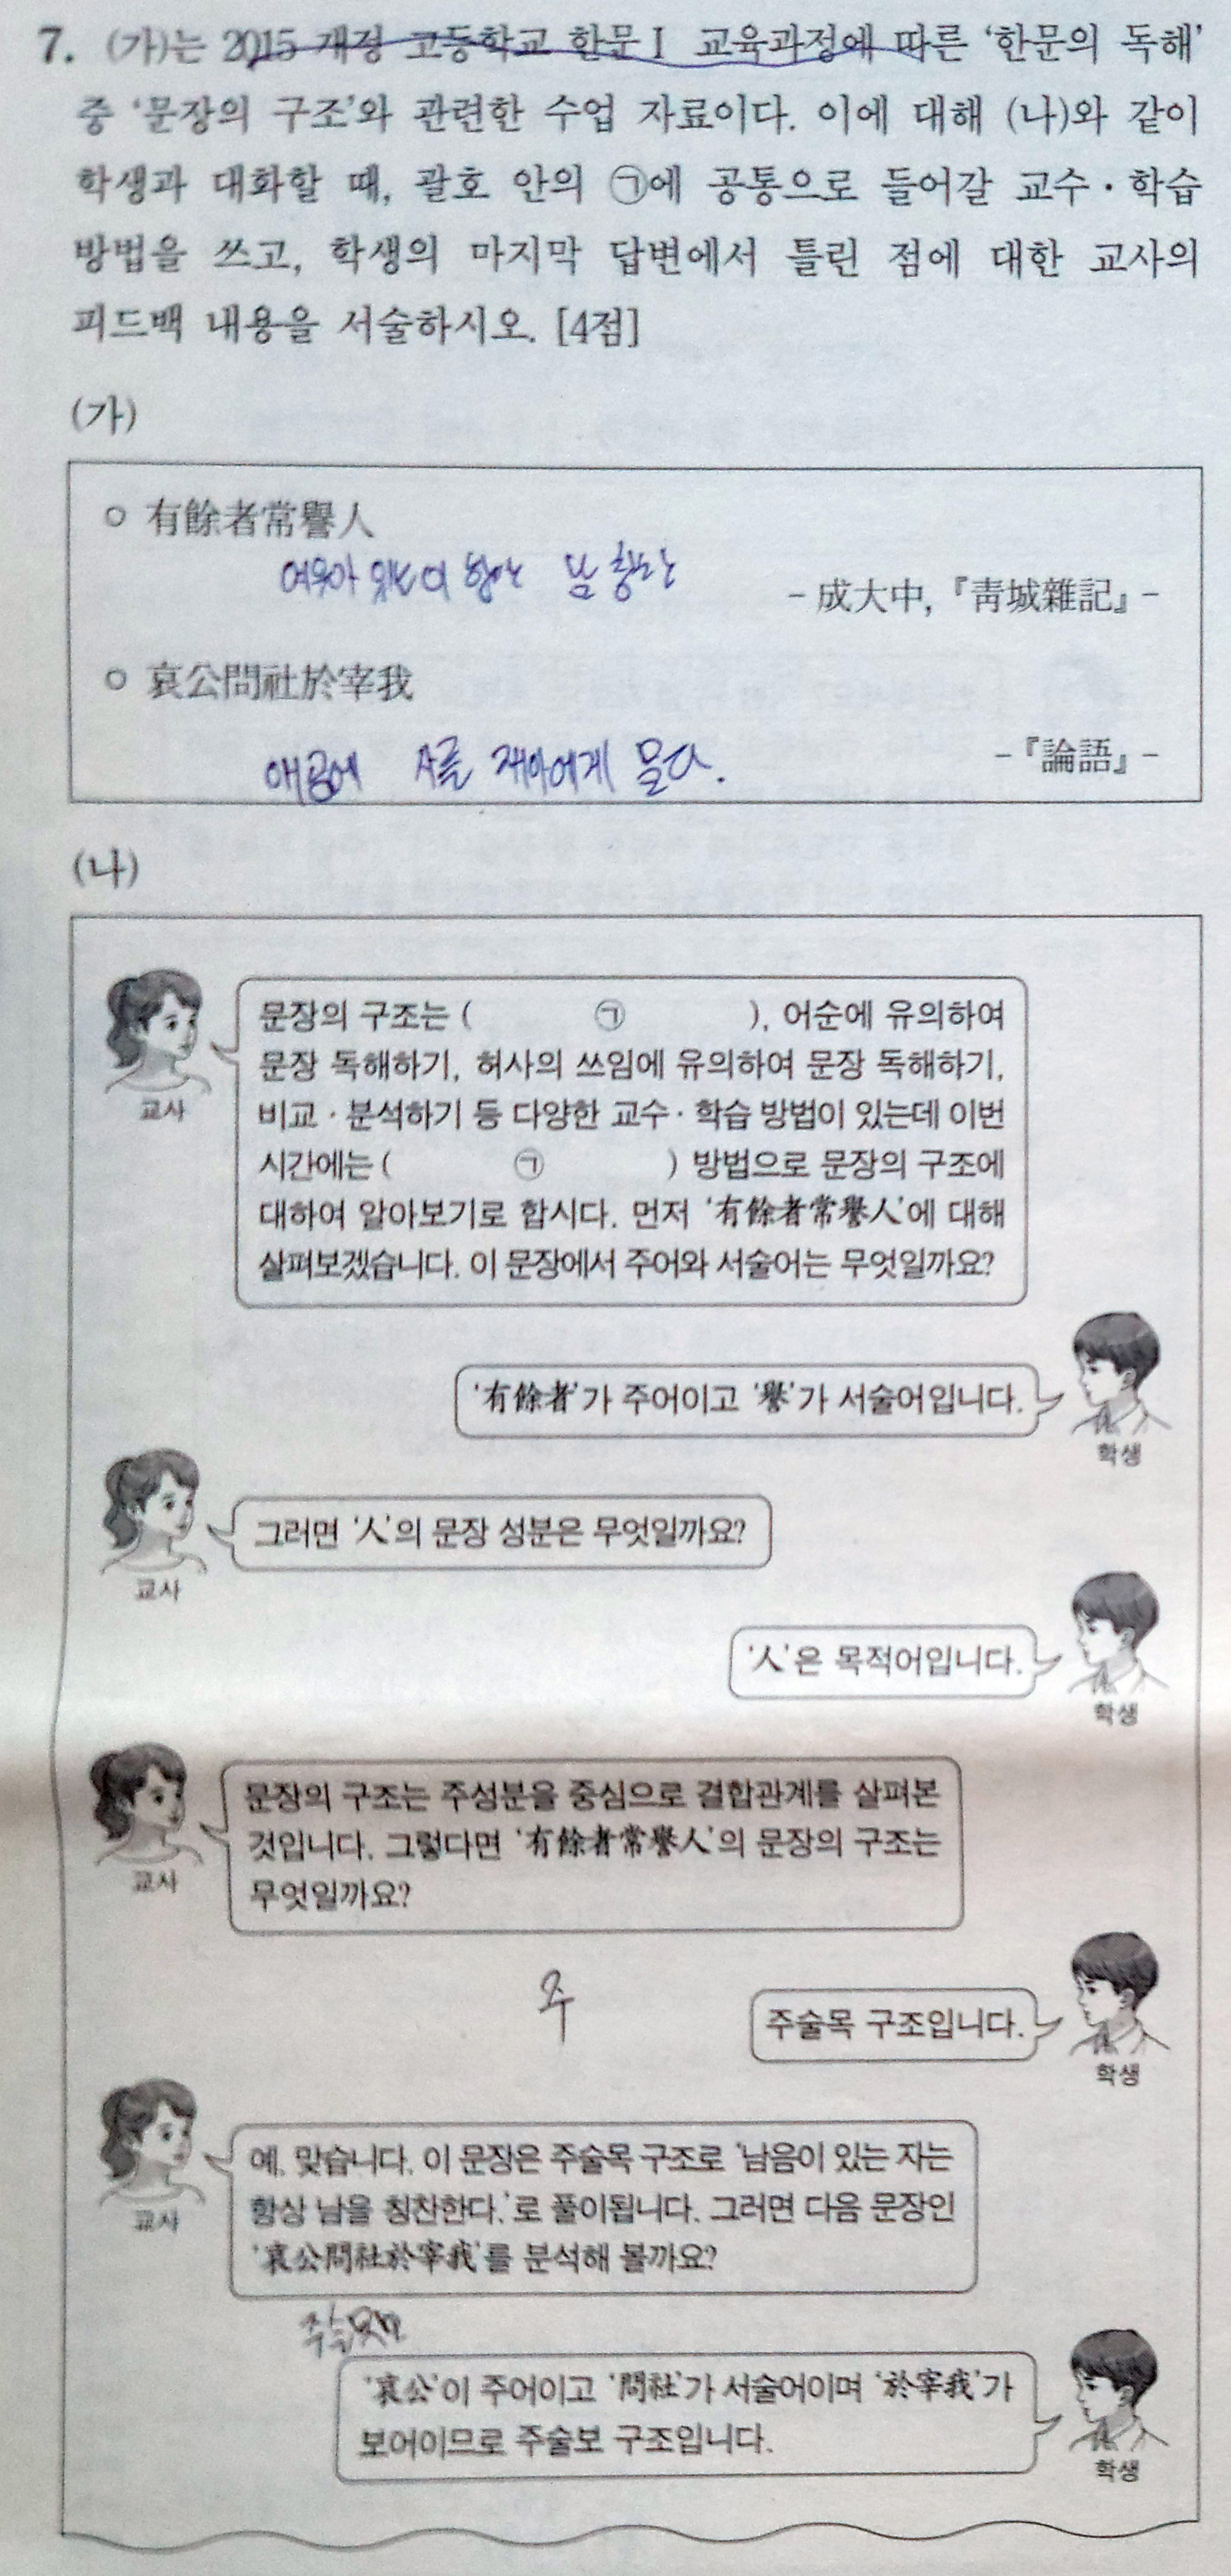 7. (가)는 2015 개정 고등학교 한문Ⅰ 교육과정에 따른 ‘한문의 독해’
중 ‘문장의 구조’와 관련한 수업 자료이다. 이에 대해 (나)와 같이
학생과 대화할 때, 괄호 안의 ㉠에 공통으로 들어갈 교수・학습
방법을 쓰고, 학생의 마지막 답변에서 틀린 점에 대한 교사의
피드백 내용을 서술하시오. [4점]
(가)
○ 有餘者常譽人
- 成大中, 『靑城雜記』 -
○ 哀公問社於宰我
애공에 A를 재아에게 묻다.
- 『論語』 -
(나)
문장의 구조는 ( ㉠ ), 어순에 유의하여
문장 독해하기, 허사의 쓰임에 유의하여 문장 독해하기,
비교・분석하기 등 다양한 교수・학습 방법이 있는데 이번
시간에는 ( ㉠ ) 방법으로 문장의 구조에
대하여 알아보기로 합시다. 먼저 ‘有餘者常譽人’에 대해
살펴보겠습니다. 이 문장에서 주어와 서술어는 무엇일까요?
교사
‘有餘者’가 주어이고 ‘譽’가 서술어입니다.
학생
그러면 ‘人’의 문장 성분은 무엇일까요?
교사
‘人’은 목적어입니다.
학생
문장의 구조는 주성분을 중심으로 결합관계를 살펴본
것입니다. 그렇다면 ‘有餘者常譽人’의 문장의 구조는
무엇일까요?
교사
주
주술목 구조입니다.
학생
예, 맞습니다. 이 문장은 주술목 구조로 ‘남음이 있는 자는
항상 남을 칭찬한다.’로 풀이됩니다. 그러면 다음 문장인
‘哀公問社於宰我’를 분석해 볼까요?
교사
‘哀公’이 주어이고 ‘問社’가 서술어이며 ‘於宰我’가
보어이므로 주술보 구조입니다.
학생